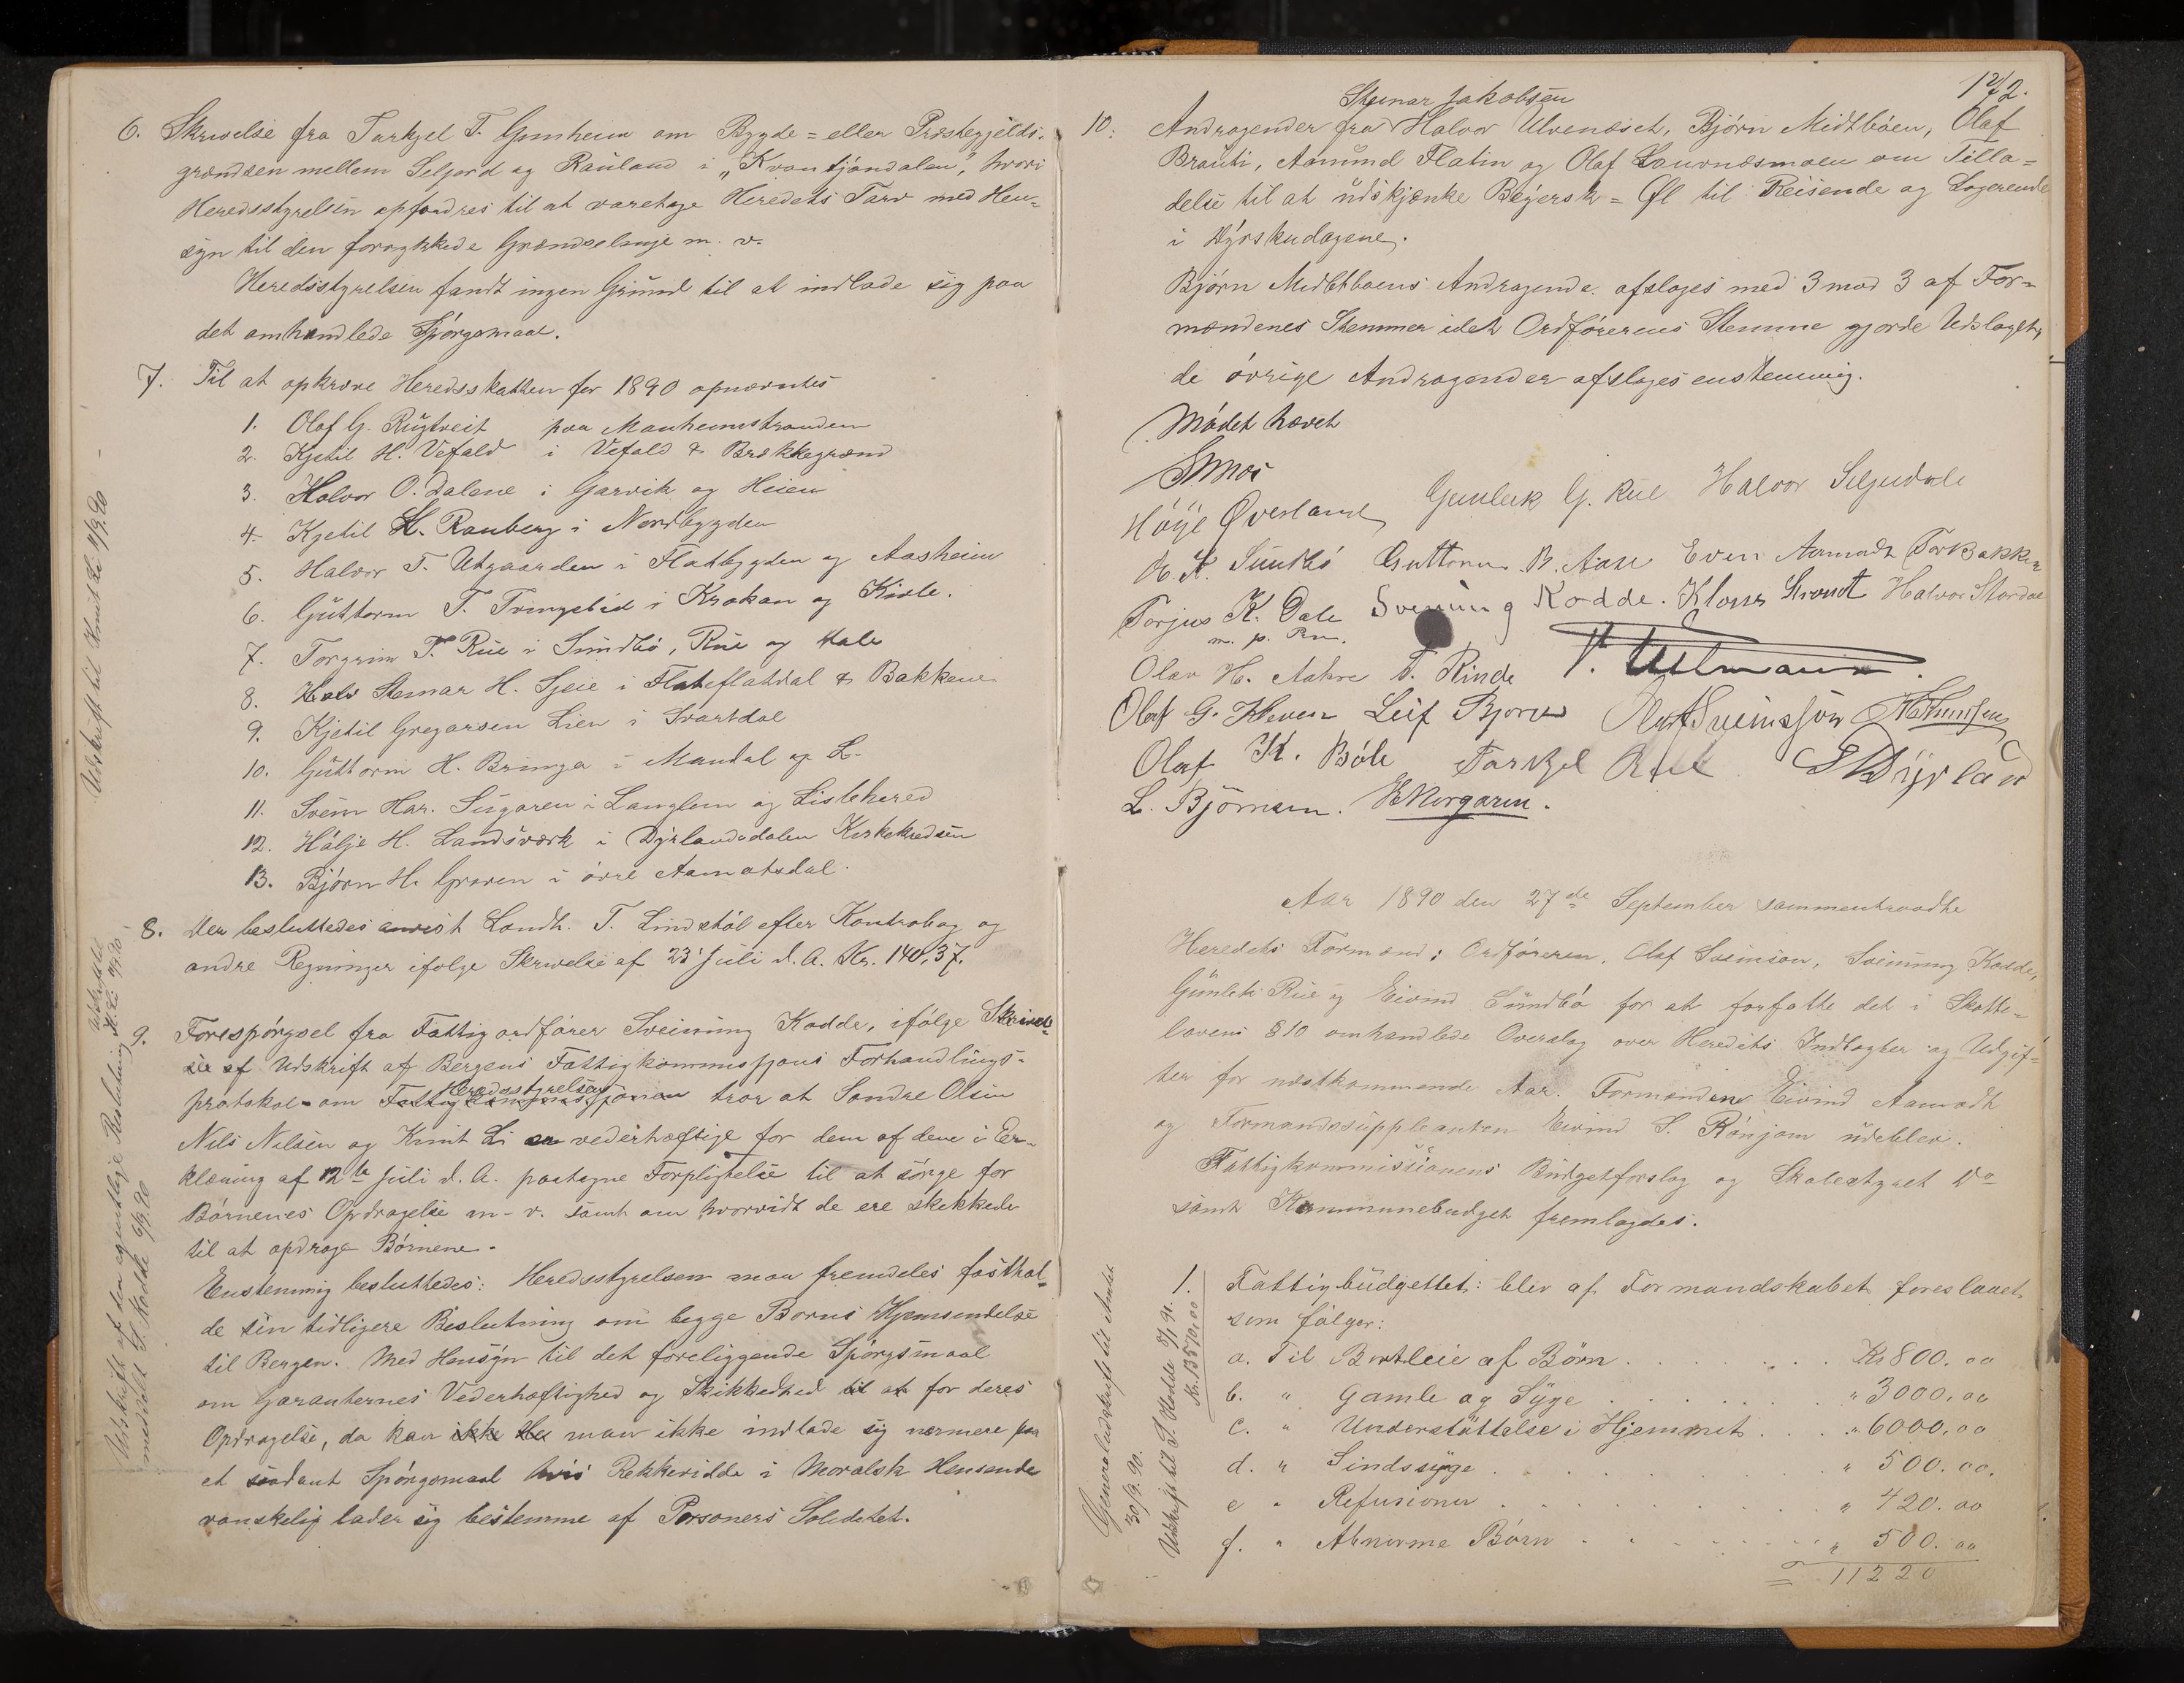 6. Skrivelse fra Tarkjel T. Gumheim om Bygde= eller Præstegjelds-
grændsen mellem Seljord og Rauland i „Kvantjöndalen", hvori
Heredsstyrelsen opfordres til at varetage Heredets Tarv med Hen=
syn til den forrykkede Grændselinje m. v.
Heredsstyrelsen fandt ingen Grund til at indlade sig paa
det omhandlede Spörgsmaal.
7. Til at opkræve Heredsskatten for 1890 opnævntes
1. Olaf G. Rugtveit paa Manheimstranden
2. Kjetil H. Vefald i Vefald & Brækkegrænd
3. Halvor O. Dalene i Garvik og Heien
4. Kjetil H. Ranberg i Nordbygden
5. Halvor T. Utgaarden i Flatbygden og Aasheim
6. Guttorm T. Tveingebö i Krokan og Kivle.
7. Torgrim T. Rue i Sundbö, Rue og Hale
8. Steinar H. Sjeie i Flateflatdal & Bakkene
9. Kjetil Gregarsen Lien i Svartdal
10. Guttorm H. Bringa i Mandal og L.
11. Svein Har. Sugaren i Langlim og Lislehered
12. Hölje H. Landsværk i Dyrlandsdalen Kirkekredsen
13. Björn H. Graven i övre Aamotsdal.
8. Der besluttedes anvist Landh. T. Lindstöl efter Kontrabog og
andre Regninger ifölge Skrivelse af 23 Juli d. A. Kr. 140,37.
9. Forespörgsel fra Fattigordförer Sveinung Kodde, ifölge Skrivel=
se af Udskrift af Bergens Fattigkommissjons Forhandlings-
protokol om Heredsstyrelsen tror at Sondre Olsen
Nils Nilsen og Knut Li er vederhæftige for dem af dene i Er-
klæring af 12te Juli d. A. paatagne Forpligtelse til at sörge for
Börnenes Opdragelse m. v. samt om hvorvidt de ere skikkede
til at opdrage Börnene.
Enstemmig besluttedes: Heredsstyrelsen maa fremdeles fasthol=
de sin tidligere Beslutning om begge Borns Hjemsendelse
til Bergen. Med Hensyn til det foreliggende Spörgsmaal
om Garanternes Vederhæftighed og Skikkedhed til at for deres
Opdragelse, da kan man ikke indlade sig nærmere paa
et saadant Spörgsmaal hvis Rækkevidde i Moralsk Henseende
vanskelig lader sig bestemme af Personers Soliditet.
Udskrift til Knut Li 4/9.90
Udskrift af den egentlige Beslutning
meddelt S. Kodde 6/9.90
172.
Steinar Jakobsen
10. Andragender fra Halvor Ulvenæset, Björn Midtböen, Olaf
Brauti, Aamund Flatin og Olaf Laurnæsmoen om Tilla=
delse til at udskjænke Beyersk=Øl til Reisende og Logerende
i Dyrskudagene.
Björn Midtböens Andragende afsloges med 3 mod 3 af For=
mændenes Stemmer idet Ordförerens Stemme gjorde Udslaget,
de övrige Andragender afsloges enstemmig.
Mödet hævet
Höije Øverland Gunleik G. Rue Halvor Seljedale
E. K. Sundbö Guttorm B. Aase Even Aamodt Torbakken
Torjus K. Dale Sveinung Kodde. Klaus Strandt Halvor Stordal
m. p. Pen.
Olav H. Aakre T. Rinde V. Ullmann.
Olaf G. Kleven Leif Bjorn Oluf Sveinssön
Olaf K. Böle Tarkjel Rue Dyrland
L. Björnsen. Morgaren.
Aar 1890 den 27de September sammentraadte
Heredets Formænd: Ordföreren, Olaf Sveinson, Sveinung Kodde,
Gunleik Rue og Eivind Sundbö for at forfatte det i Skatte=
lovens § 10 omhandlede Overslag over Heredets Indtægter og Udgif=
ter for næstkommende Aar. Formanden Eivind Aamodt
og Formandssuppleanten Eivind S. Rönjom udeblev.
Fattigkommissionens Budgetforslag og Skolestyret Do
samt Kommunebudget fremlagdes.
1. Fattigbudgettet: blev af Formandskabet foreslaaet
som fölger:
a. Til Bortleie af Börn . . . . Kr 800.00
b. " Gamle og Syge . . . . " 3000,00
c. " Understöttelse i Hjemmet . . . " 6000,00
d. " Sindssyge . . . . " 500.00.
e " Refusioner . . . . " 420.00
f. " Abnorme Börn . . . . " 500.00
= 11220
Generaludskrift til Amtet
30/9.90.
Udskrift til S. Kodde 5/1 91.